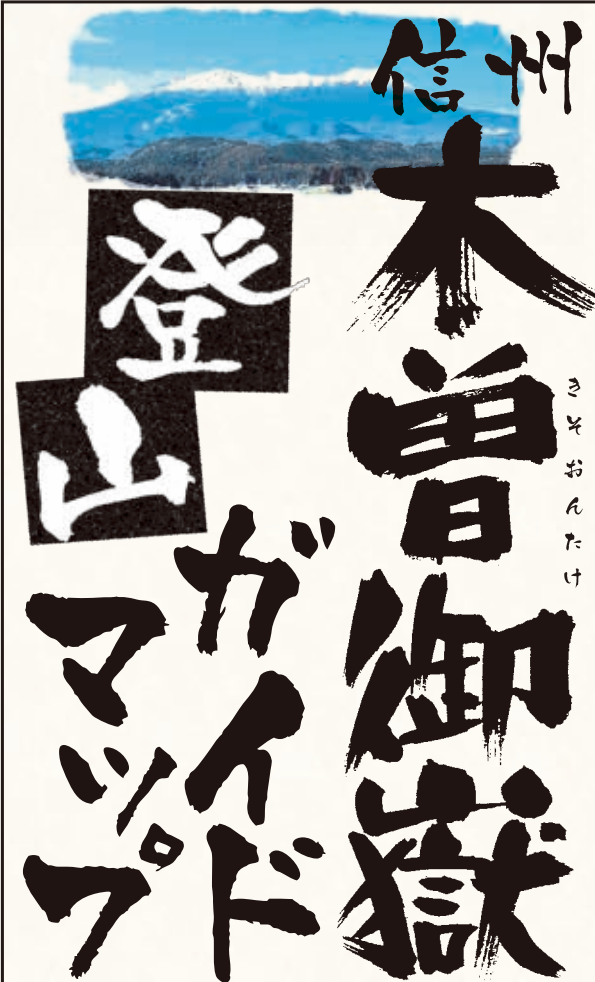 信州
木曽御嶽
きそおんたけ
登山
ガイド
マップ